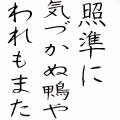 照準に
気づかぬ鴨や
われもまた